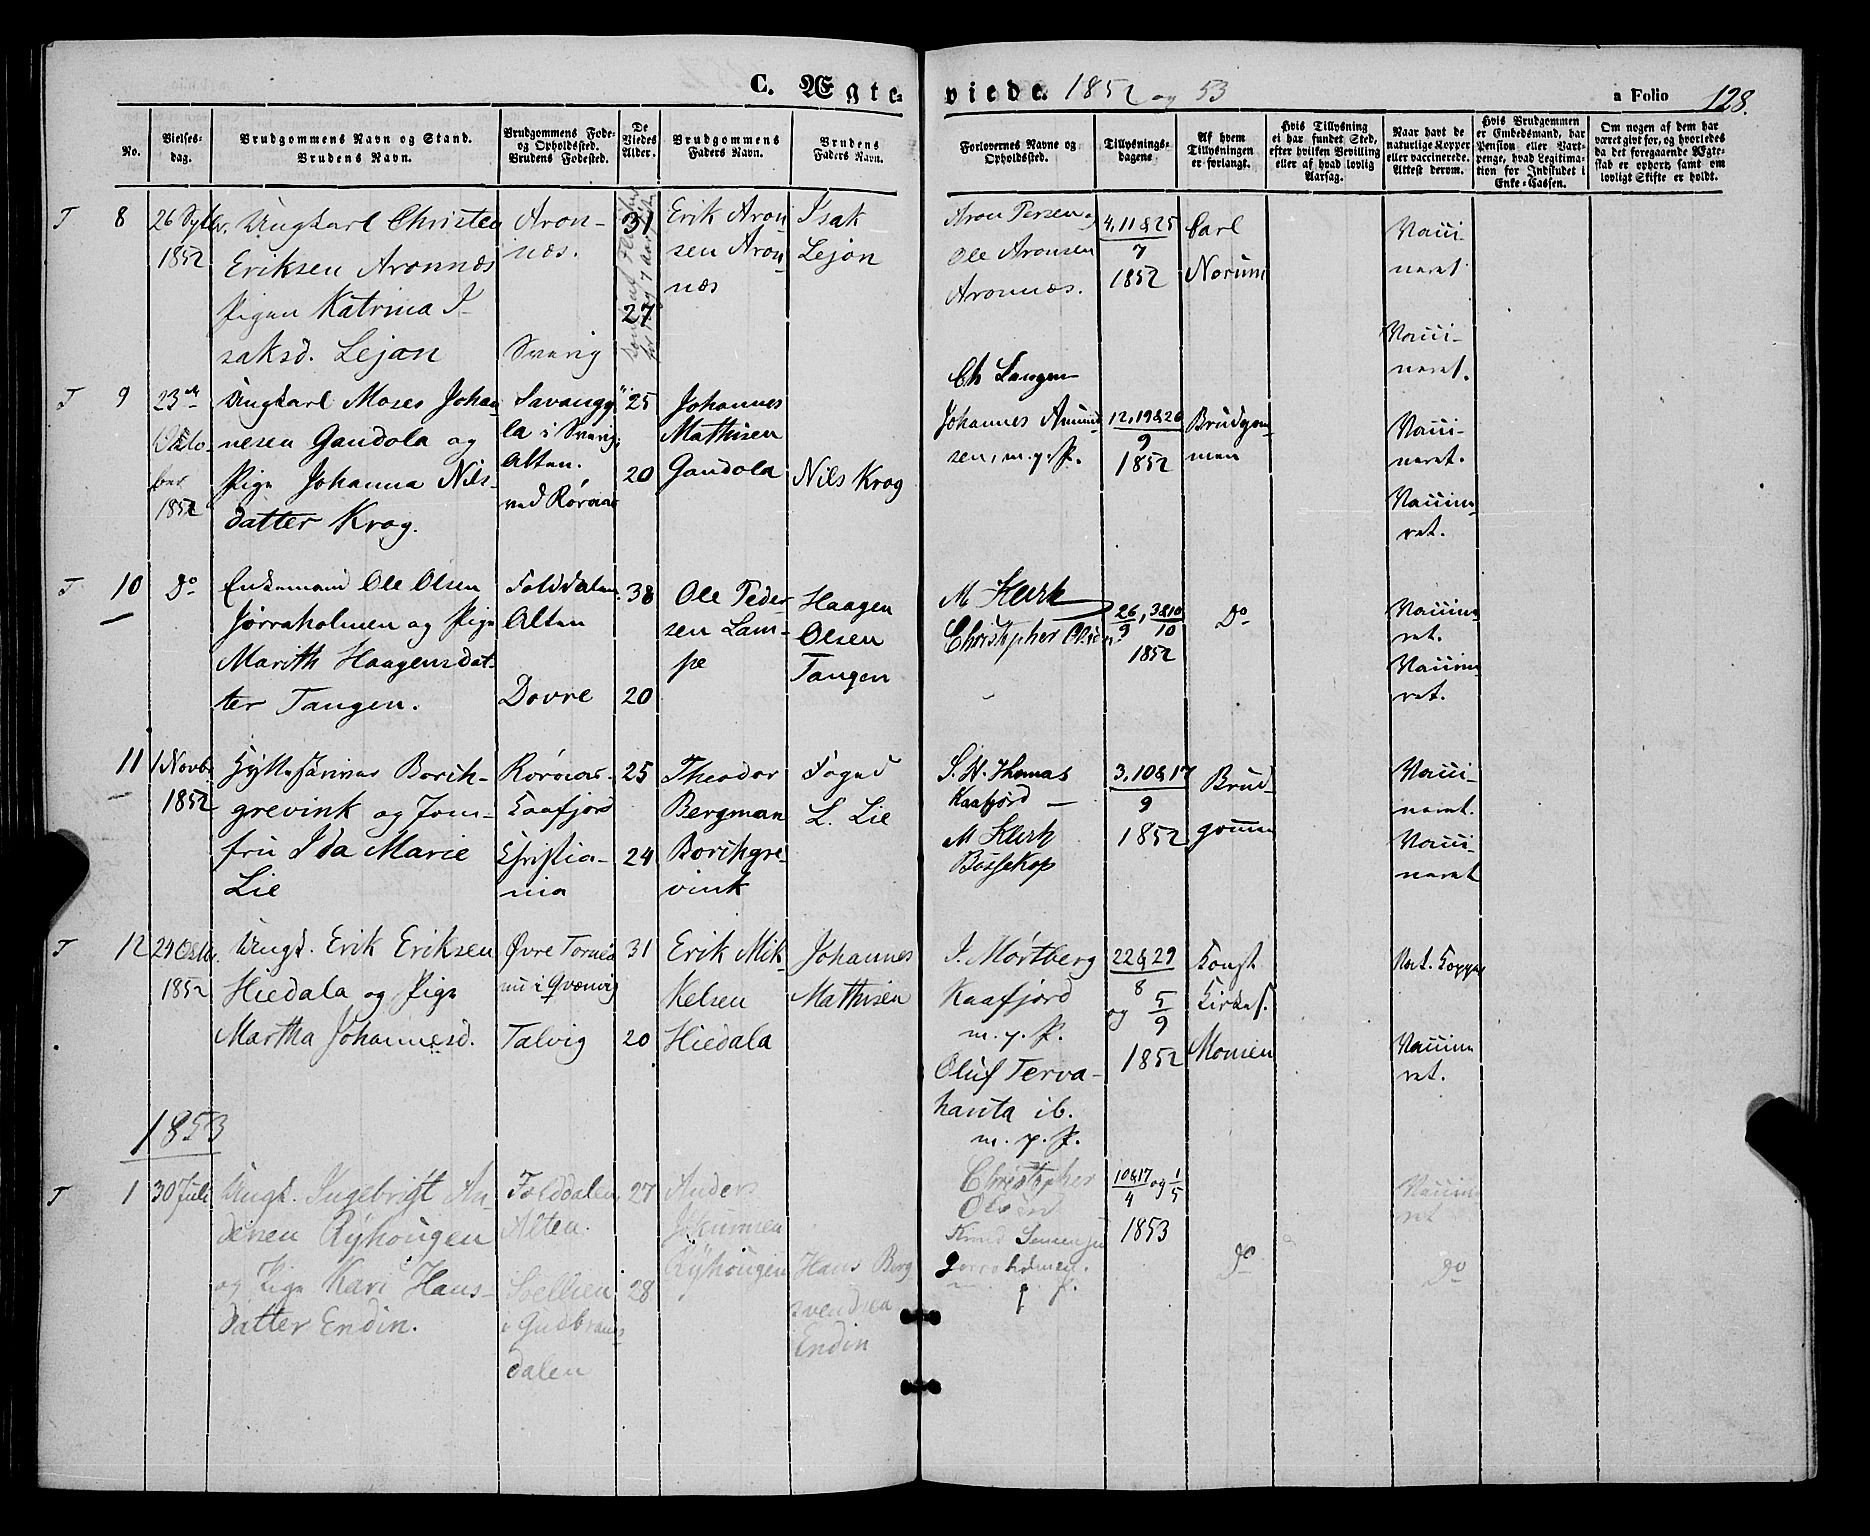 C. Ægte-
viede. 1852 og 53
a Folio 128.
No.
Vielses-
dag.
Brudgommens Navn og Stand.
Brudens Navn.
Brudgommens Fode-
og Opholdssted.
Brudens Fodested.
De
Viedes
Alder.
Brudgommens
Faders Navn.
Brudens
Faders Navn.
Forlovernes Navne og
Opholdssted.
Tillysnings-
dagene.
Af hvem
Tillysningen
er forlangt.
Hvis Tillysning
ei har fundet Sted,
efter hvilken Bevilling
eller af hvad lovlig
Aarsag.
Naar havt de
naturlige Kopper
eller vaccinerede.
Attest derom.
Hvis Brudgommen
er Embedsmand, har
Pension eller Vart-
penge, hvad Legitima-
tion for Indskudet i
Enke-Cassen.
Om nogen af dem har
været givt før, og hvorledes
da det foregaaende Ægte-
skab er ophørt, samt om
lovligt Skifte er holdt.
T 8
26 Sptbr.
1852
Ungkarl Christen
Eriksen Aronnæs
Pigen Katrina I-
saksd. Lejon
Aron-
næs.
Sverig
31
27
Erik Aron-
sen Aron-
næs
Isak
Lejon
Aron Persen og
Ole Aronsen
Aronnæs.
4, 11 & 25
7
1852
Carl
Norum
Vacci-
neret
Vacci-
neret.
T 9
23de
Octo-
ber
1852
Ungkarl Moses Johan-
nesen Gandola og
Pige Johanna Nils-
datter Krog.
Savangy-
la i Sverig.
Alten.
ved Röraas
25
20
Johannes
Mathisen
Gandola
Nils Krog
Ch Langen
Johannes Amund-
sen, m. p. P.
12, 19 & 26
9
1852
Brudgom-
men
Vacci-
neret.
Vaccine-
ret.
T 10
Do
Enkemand Ole Olsen
Jørraholmen og Pige
Marith Haagensdat-
ter Tangen.
Folddalen.
Alten
Dovre
38
20
Ole Peder-
sen Lam-
pe
Haagen
Olsen
Tangen
M Klerk
Christopher
26, 3 & 10
9 10
1852
Do
Vaccine-
ret.
Vaccine-
ret.
11
1 Novbr
1852
Hytteskriver Borch-
grevink og Jom-
fru Ida Marie
Lie
Röraas-
Kaafjord
Christia-
nia
25
24
Theodor
Bergman
Borchgre-
vink
Foged
L. Lie
S. H. Thomas
Kaafjord
M Klerk
Bossekop
3, 10 & 17
9
1852
Brud-
gomm
Vacci-
neret.
Vacci-
neret
T 12
24 Octbr.
1852
Ungk. Erik Eriksen
Hiedala og Pige
Martha Johannesd.
Øvre Torneå
nu i Qvænvig
Talvig
31
20
Erik Mik-
kelsen
Hiedala
Johannes
Mathisen
I. Mörtberg
Kaafjord
m. p. P.
Oluf Terva-
hauta ib.
m. p. P.
22 & 29
8
og 5
9
1852
Const
Kirkes.
Monsen
Nat. Kopper
Vaccine
ret.
1853
T 1
30 Juli
Ungk. Ingebrigt An-
dersen Ryhougen
og Pige Kari Hans-
datter Endin.
Folddalen,
Alten.
i Gudbrands-
dalen
27
28
Anders
Ryhougen
Hans Berg
svendsen
Endin
Christopher
Jorraholmen.
10 & 17 og 1
4 5
1853
do
Vaccine
ret
do